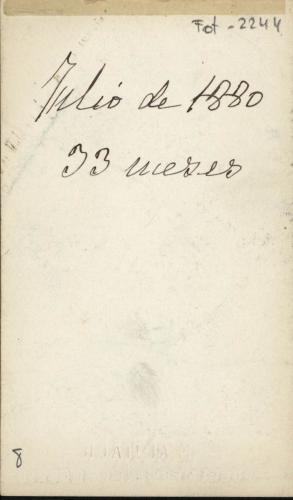 Fot-2244
Julio de 1880
33 meses
8